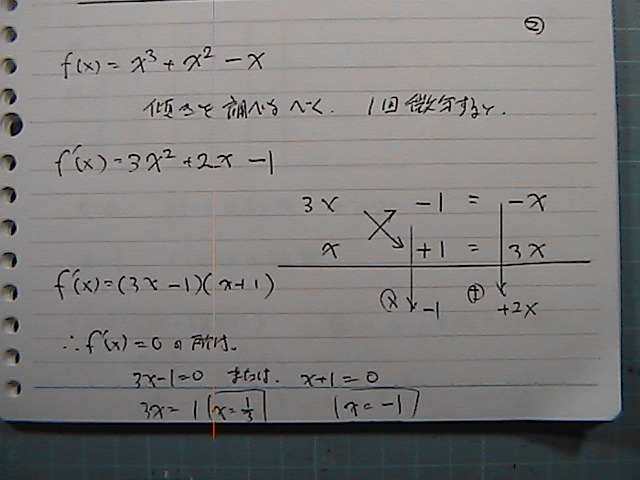 ②
f(x) = x³ + x² - x
傾きを調べるべく. 1回微分すると.
f'(x) = 3x² + 2x - 1
3x -1 = -x
x +1 = 3x
f'(x) = (3x - 1)(x + 1)
ⓧ -1 ⊕ +2x
∴ f'(x) = 0 の所は.
3x - 1 = 0 または. x + 1 = 0
3x = 1 x = 1/3 x = -1